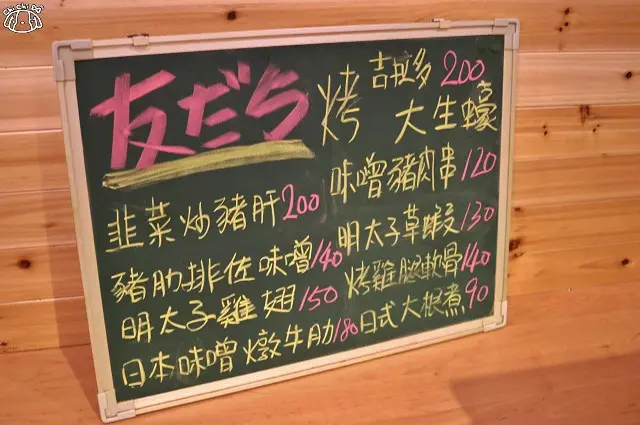 chi chi Da'
友だち
烤 吉拉多 200
大生蠔
味噌豬肉串120
韭菜炒豬肝200
明太子草蝦130
豬肋排佐味噌140
烤雞腿軟骨140
明太子雞翅150
日式大根煮90
日本味噌燉牛肋180